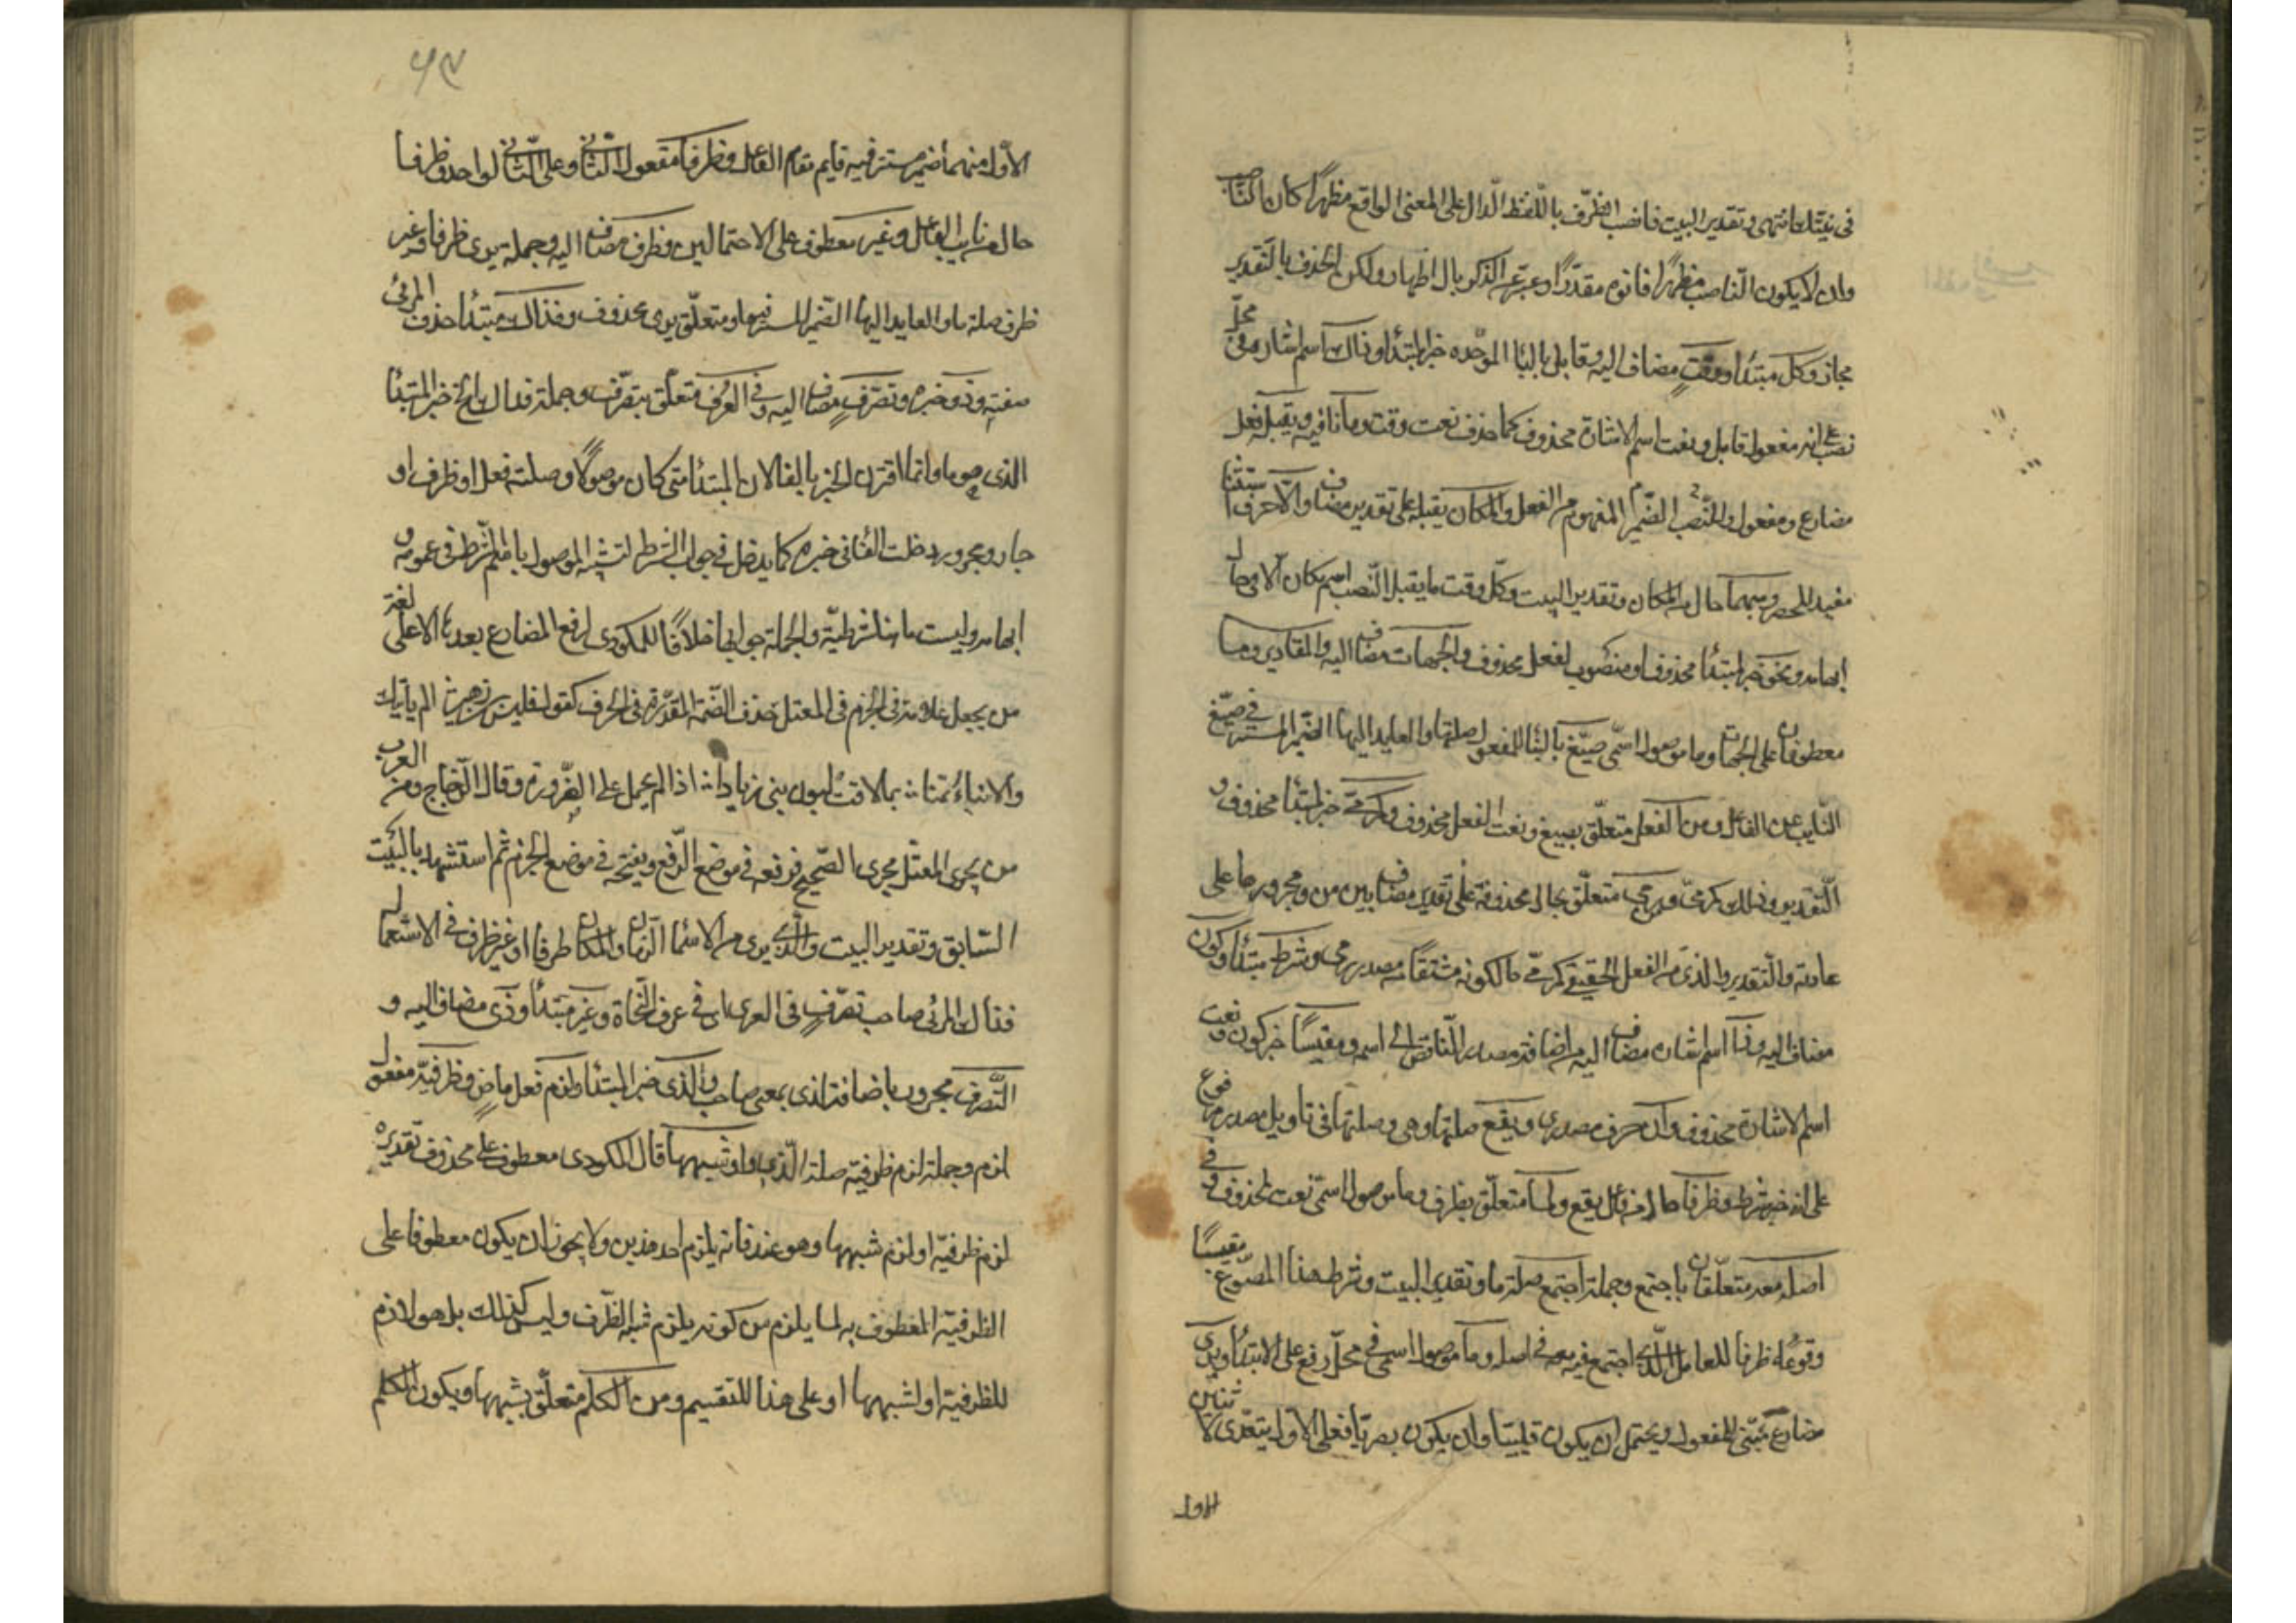 في نيتك انتهى وتقدير البيت فانصب الظرف باللفظ الدال على المعنى الواقع مظهرا كان الناصب
وان لا يكون الناصب مظهرا فانوه مقدرا وعبر عن الذكر بالاظهار ولكن الحذف بالتقدير
مجاز وكل مبتدأ ووقت مضاف اليه وقابل بالباء الموحدة خبر المبتدأ وذاك اسم اشارة في محل
نصب على انه مفعول قابل ونعت اسم الاشارة محذوف كما حذف نعت وقت وما نافية ويقبله فعل
مضارع ومفعول والنصب الضمير المفهوم من الفعل والمكان يقبله على تقدير مضاف والا حرف استثناء
مفيد للحصر ومبهما حال من المكان وتقدير البيت وكل وقت ما يقبل النصب اسم مكان الا في حال
ابهامه ونحو خبر لمبتدأ محذوف او منصوب لفعل محذوف والجهات مضاف اليه والمقادير وما
معطوفان على الجهات وما موصول اسمي صيغ بالبناء للمفعول صلتها والعايد اليها الضمير المستتر في صيغ
النايب عن الفاعل ومن الفعل متعلق بصيغ ونعت الفعل محذوف وكرمى خبر لمبتدأ محذوف و
التقدير وذلك كرمى ومن رمى متعلق بحال محذوفة على تقدير مضاف بين من ومجرورها على
عادته والتقدير والذي من الفعل الحقيقي كرمى حالكونه مشتقا من مصدر رمى وشرط مبتدأ وكون
مضاف اليه وذا اسم اشارة مضاف اليه من اضافة مصدر الناقص الى اسمه ومقيسا خبر كون ونعت
اسم الاشارة محذوف وان حرف مصدري ويقع صلتها وهي وصلتها في تاويل مصدر مرفوع
على انه خبر شرط وظرفا حال من فاعل يقع ولما متعلق بظرف وما موصول اسمي نعت لمحذوف وفي
اصله معه متعلقان باجتمع وجملة اجتمع صلة ما وتقدير البيت وشرط هذا المصوغ مقيسا
وقوعه ظرفا للعامل الذي اجتمع فيه معه في اصله وما موصول اسمي في محل رفع على الابتداء ويرى
مضارع مبني للمفعول ويحتمل ان يكون قلبيا وان يكون بصريا فعلى الاول يتعدى لاثنين
الاول
٥٩
الاول منهما ضمير مستتر فيه قايم مقام الفاعل وظرفا مفعول الثاني وعلى الثاني لواحد وظرفا
حال من نايب الفاعل وغير معطوف على الاحتمالين وظرف مضاف اليه وجملة يرى ظرفا وغير
ظرف صلة ما والعايد اليها الضمير المستتر فيها ومتعلق يرى محذوف وفذاك مبتدأ حذف المرئي
صفته وذو خبره وتصرف مضاف اليه وفي العرف متعلق بتصرف وجملة فذاك الخ خبر المبتدأ
الذي هو ما وانما اقترن الخبر بالفاء لان المبتدأ متى كان موصولا وصلته فعل او ظرف او
جار ومجرور دخلت الفاء في خبره كما يدخل في جواب الشرط لتشبه الموصول باسم الشرط في عمومه و
ابهامه وليست ما هنا شرطية والجملة جوابها خلافا للمكودي لرفع المضارع بعدها الا على لغة
من يجعل علامة في الجزم في المعتل حذف الضمة المقدرة في الحرف كقول قيس بن زهير الم ياتيك
والانباء تنمي بما لاقت لبون بني زياد اذا لم يحمل على الضرورة وقال الزجاج ومن العرب
من يجري المعتل مجرى الصحيح فرفعه في موضع الرفع ويفتحه في موضع الجزم ثم استشهد بالبيت
السابق وتقدير البيت والذي يرى من الاسماء الزمان والمكان ظرفا او غير ظرف في الاستعمال
فذاك المرئي صاحب تصرف في العرف اي في عرف النحاة وغير مبتدأ وذي مضاف اليه و
التصرف مجرور باضافة ذي بمعنى صاحب والذي خبر المبتدأ ولزم فعل ماض وظرفية مفعول
لزم وجملة لزم ظرفية صلة الذي واو شبهها قال المكودي معطوف على محذوف تقديره
لزم ظرفية او لزم شبهها وهو عند فانه يلزم احد هذين ولا يجوز ان يكون معطوفا على
الظرفية المنطوق به لما يلزم من كونه يلزم شبه الظرف وليس كذلك بل هو لازم
للظرفية او لشبهها او على هذا للتقسيم ومن الكلم متعلق بشبهها ويكون الكلم